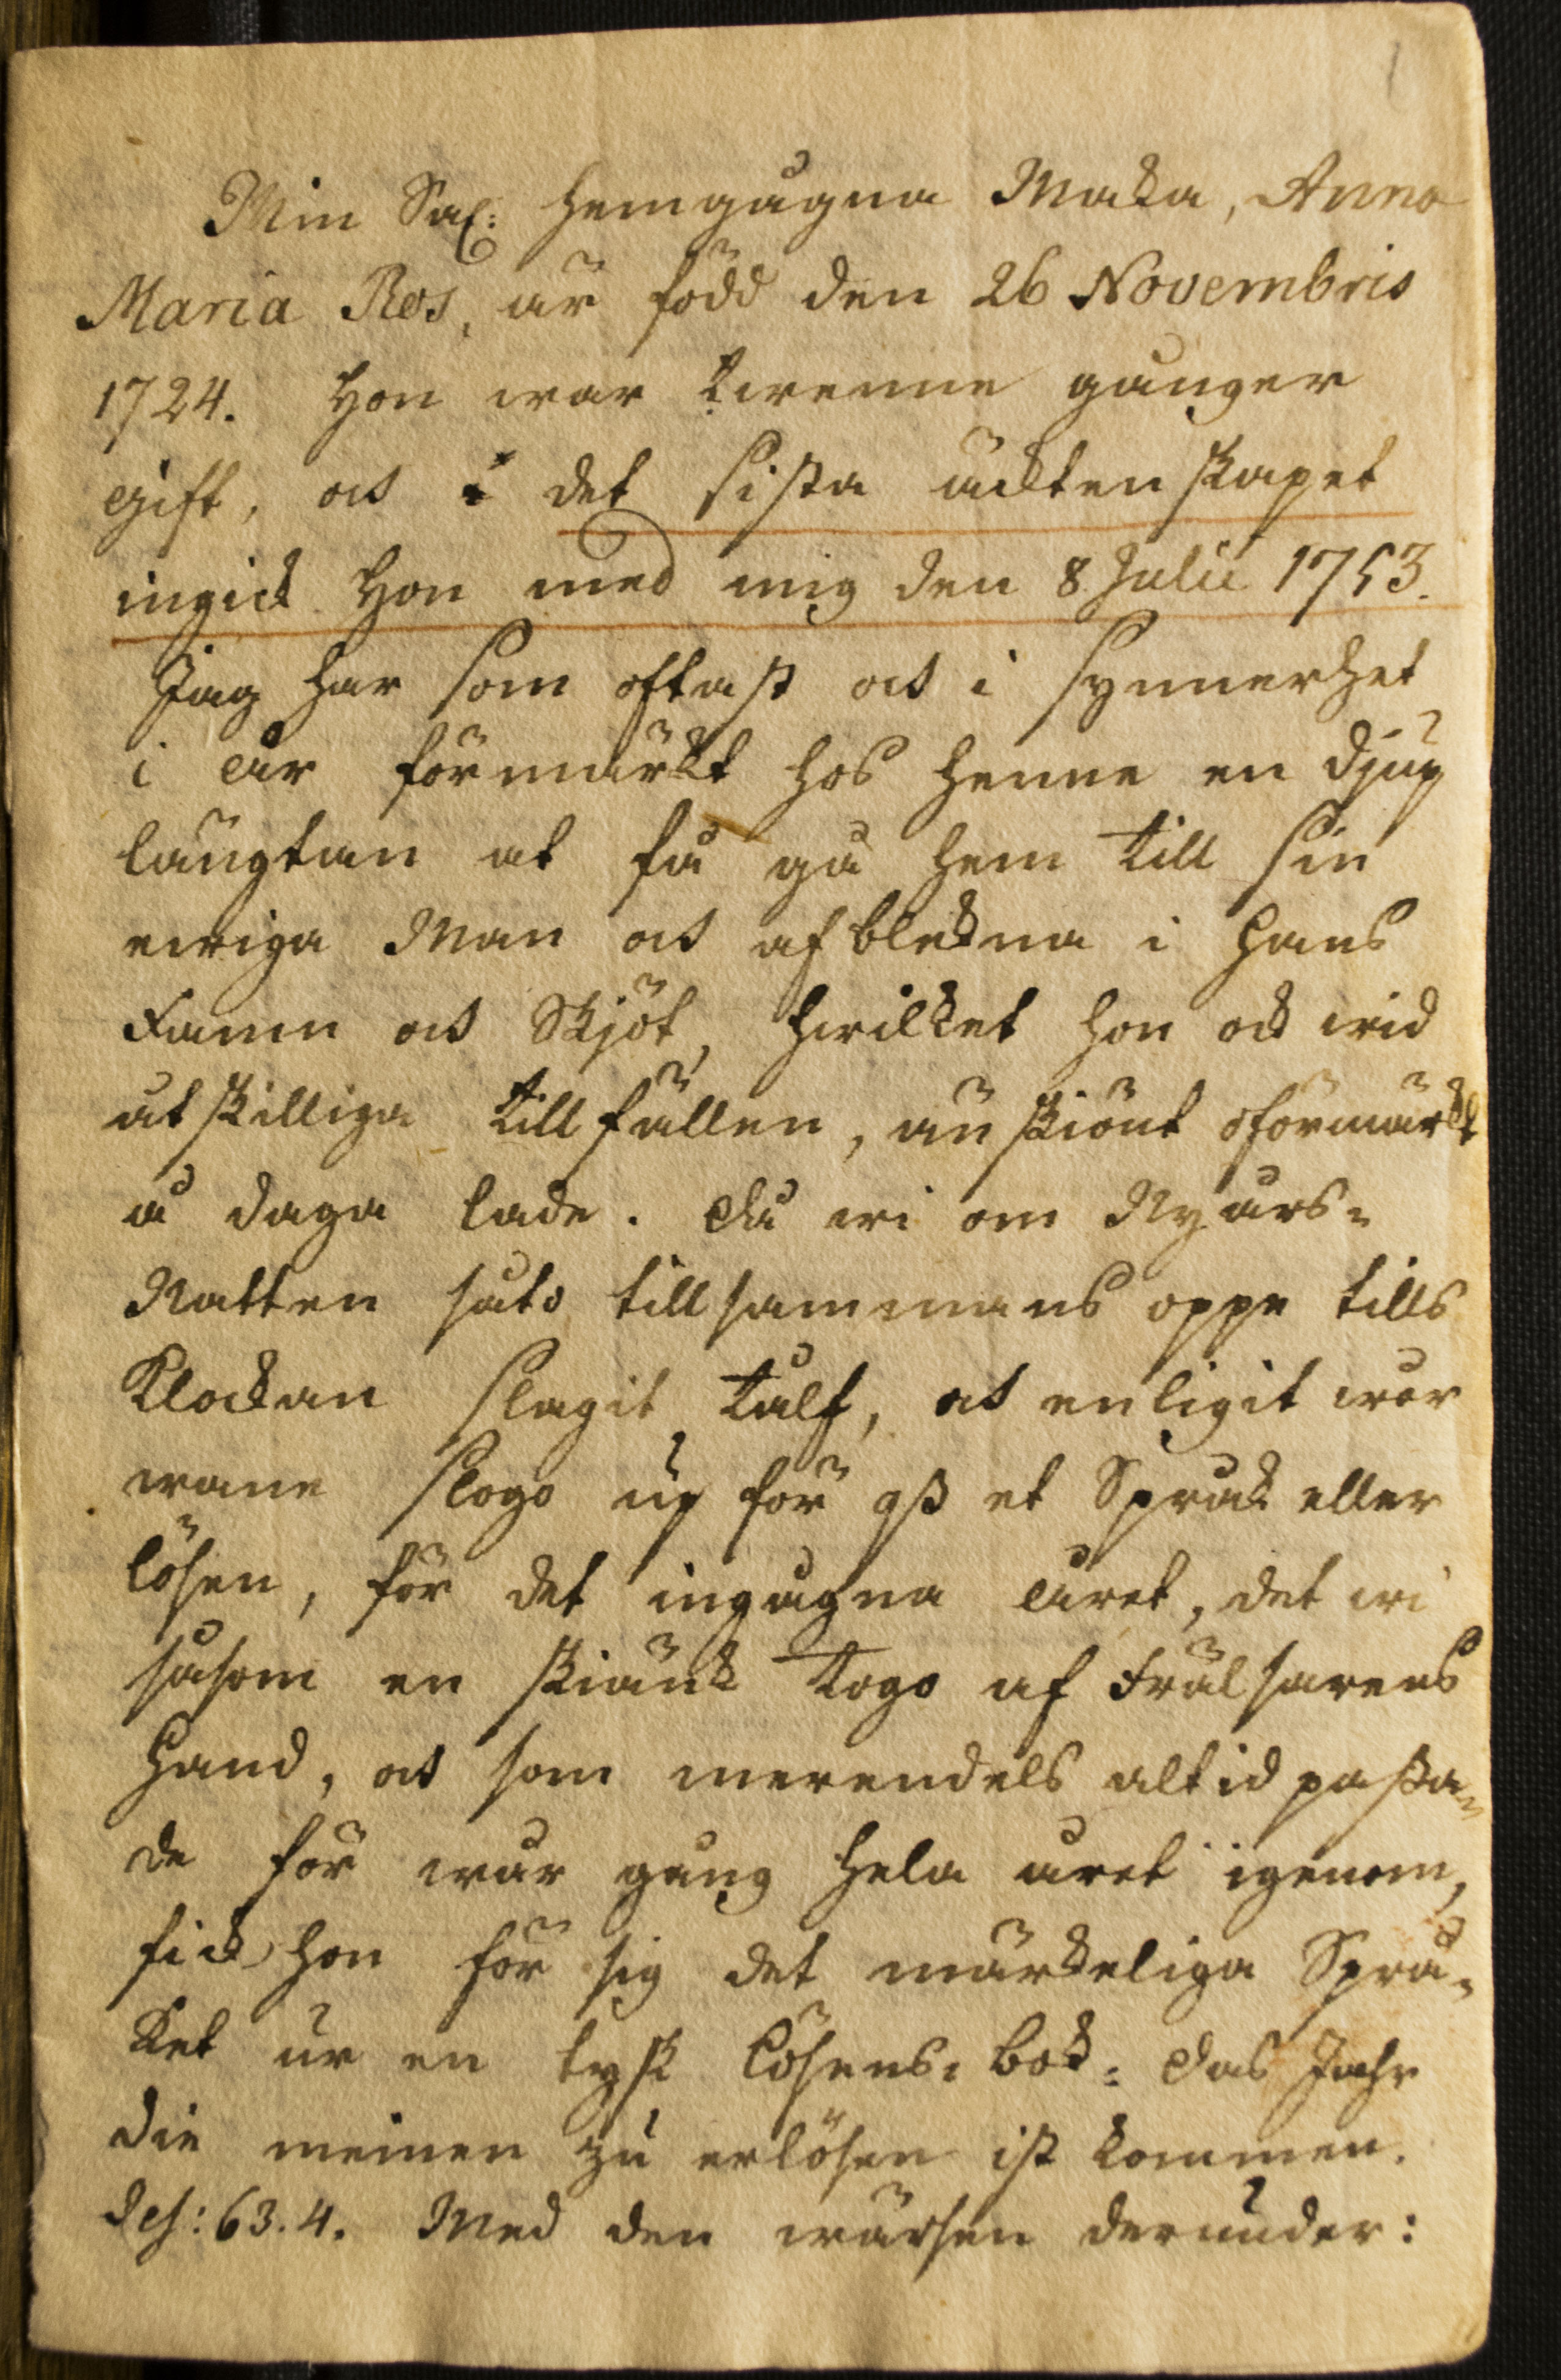 1
Min Sal: hemgågna Maka, Anna
Maria Ros, är född den 26 Novembris
1724. Hon war twenne gånger
gift, och i det sista äcktenskapet
ingick Hon med mig den 8 Julii 1753.
Jag har som oftast och i synnerhet
i år förmärkt hos henne en djup
längtan at få gå hem till sin
ewiga Man och afblekna i Hans
Famn och Skjöt, hwilket hon ock wid
åtskilliga tillfällen, änskiönt oförmärkt
å daga lade. Då wi om Nyårs-
Natten såto tillsammans oppe tills
Klockan slagit tålf, och enligit wår
wane slogo up för oß et Språk eller
lösen, för det ingågna året, det wi
såsom en skiänk togo af Frälsarens
Hand, och som merendels altid paßa-
de för wår gång hela året igenom,
fick hon för sig det märkeliga Språ-
ket ur en tysk Lösens-bok: Das Jahr
die meinen zu erlösen ist kommen.
Jes: 63.4. Med den wärsen derunder: